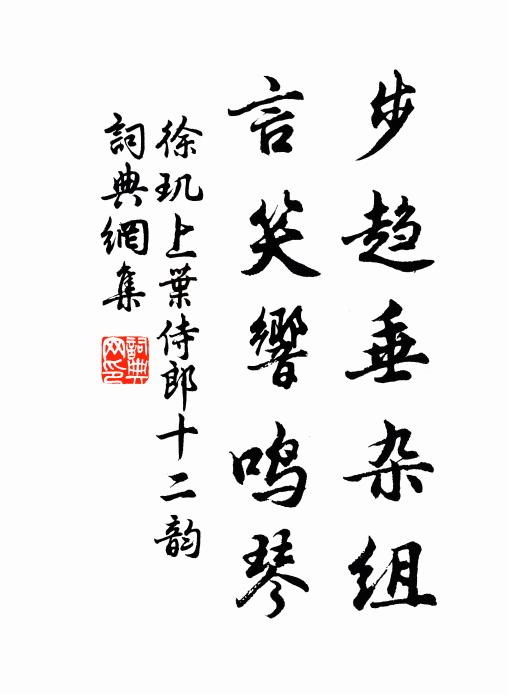 步趋垂杂组
言笑響鸣琴
徐玑上葉侍郎十二韵
詞典網集
詞典網印